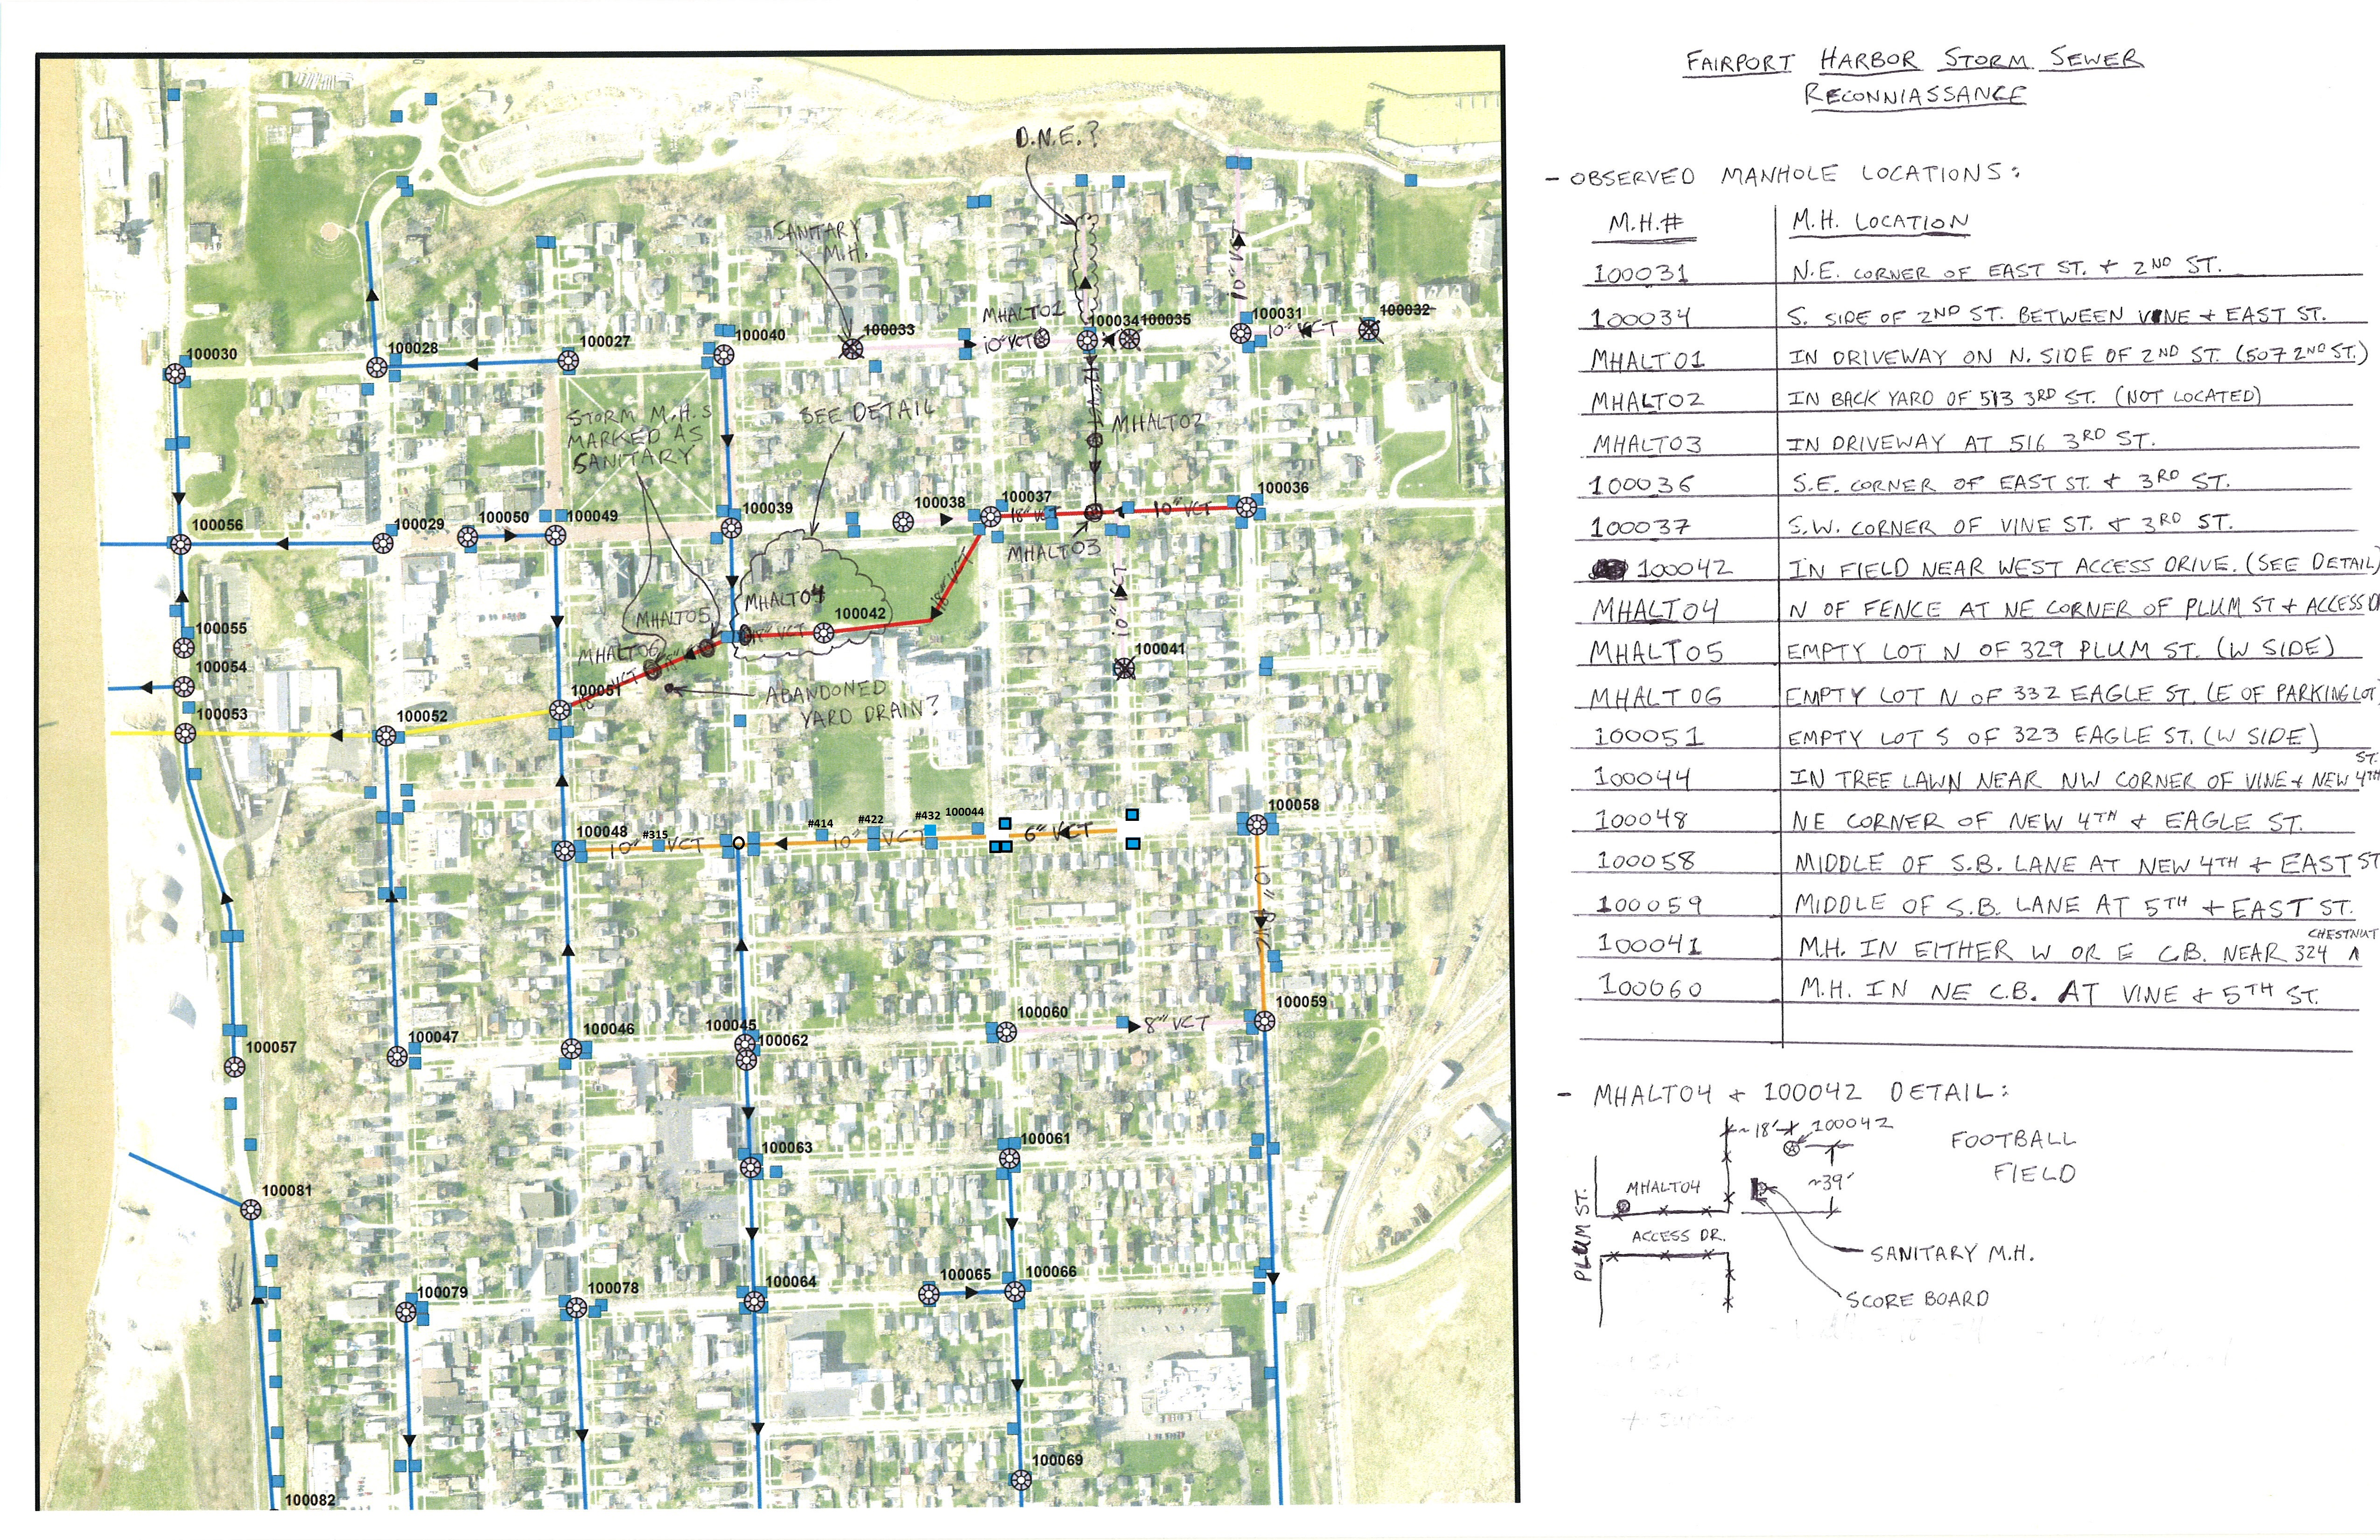 FAIRPORT HARBOR STORM SEWER
RECONNIASSANCE
- OBSERVED MANHOLE LOCATIONS:
M.H.# M.H. LOCATION
100031 N.E. CORNER OF EAST ST. + 2ND ST.
100034 S. SIDE OF 2ND ST. BETWEEN VINE + EAST ST.
MHALT01 IN DRIVEWAY ON N. SIDE OF 2ND ST. (507 2ND ST.)
MHALT02 IN BACK YARD OF 513 3RD ST. (NOT LOCATED)
MHALT03 IN DRIVEWAY AT 516 3RD ST.
100036 S.E. CORNER OF EAST ST. + 3RD ST.
100037 S.W. CORNER OF VINE ST. + 3RD ST.
100042 IN FIELD NEAR WEST ACCESS DRIVE. (SEE DETAIL)
MHALT04 N OF FENCE AT NE CORNER OF PLUM ST + ACCESS DR
MHALT05 EMPTY LOT N OF 329 PLUM ST. (W SIDE)
MHALT06 EMPTY LOT N OF 332 EAGLE ST. (E OF PARKING LOT)
100051 EMPTY LOT S OF 323 EAGLE ST. (W SIDE)
100044 IN TREE LAWN NEAR NW CORNER OF VINE + NEW 4TH ST.
100048 NE CORNER OF NEW 4TH + EAGLE ST.
100058 MIDDLE OF S.B. LANE AT NEW 4TH + EAST ST
100059 MIDDLE OF S.B. LANE AT 5TH + EAST ST.
100041 M.H. IN EITHER W OR E C.B. NEAR 324 CHESTNUT
100060 M.H. IN NE C.B. AT VINE + 5TH ST.
- MHALT04 + 100042 DETAIL:
~18' 100042
FOOTBALL
FIELD
~39'
MHALT04
PLUM ST.
ACCESS DR.
SANITARY M.H.
SCORE BOARD
D.N.E.?
SANITARY
M.H.
10" VCT
MHALT01
100033
100034 100035
100031
100032
10" VCT
10" VCT
100030
100028
100027
100040
12" VCT
STORM M.H.s
MARKED AS
SANITARY
SEE DETAIL
MHALT02
100056
100029
100050
100049
100039
100038
100037
18" VCT
10" VCT
100036
MHALT03
18" VCT
10" VCT
MHALT04
MHALT05
100042
VCT
MHALT06
VCT
100055
100054
100041
100051
ABANDONED
YARD DRAIN?
100053
100052
100048
#315
10" VCT
#414
#422
#432
100044
10" VCT
6" VCT
100058
10" VCT
100047
100046
100045
100062
100060
8" VCT
100059
100057
100063
100061
100081
100079
100078
100064
100065
100066
100069
100082